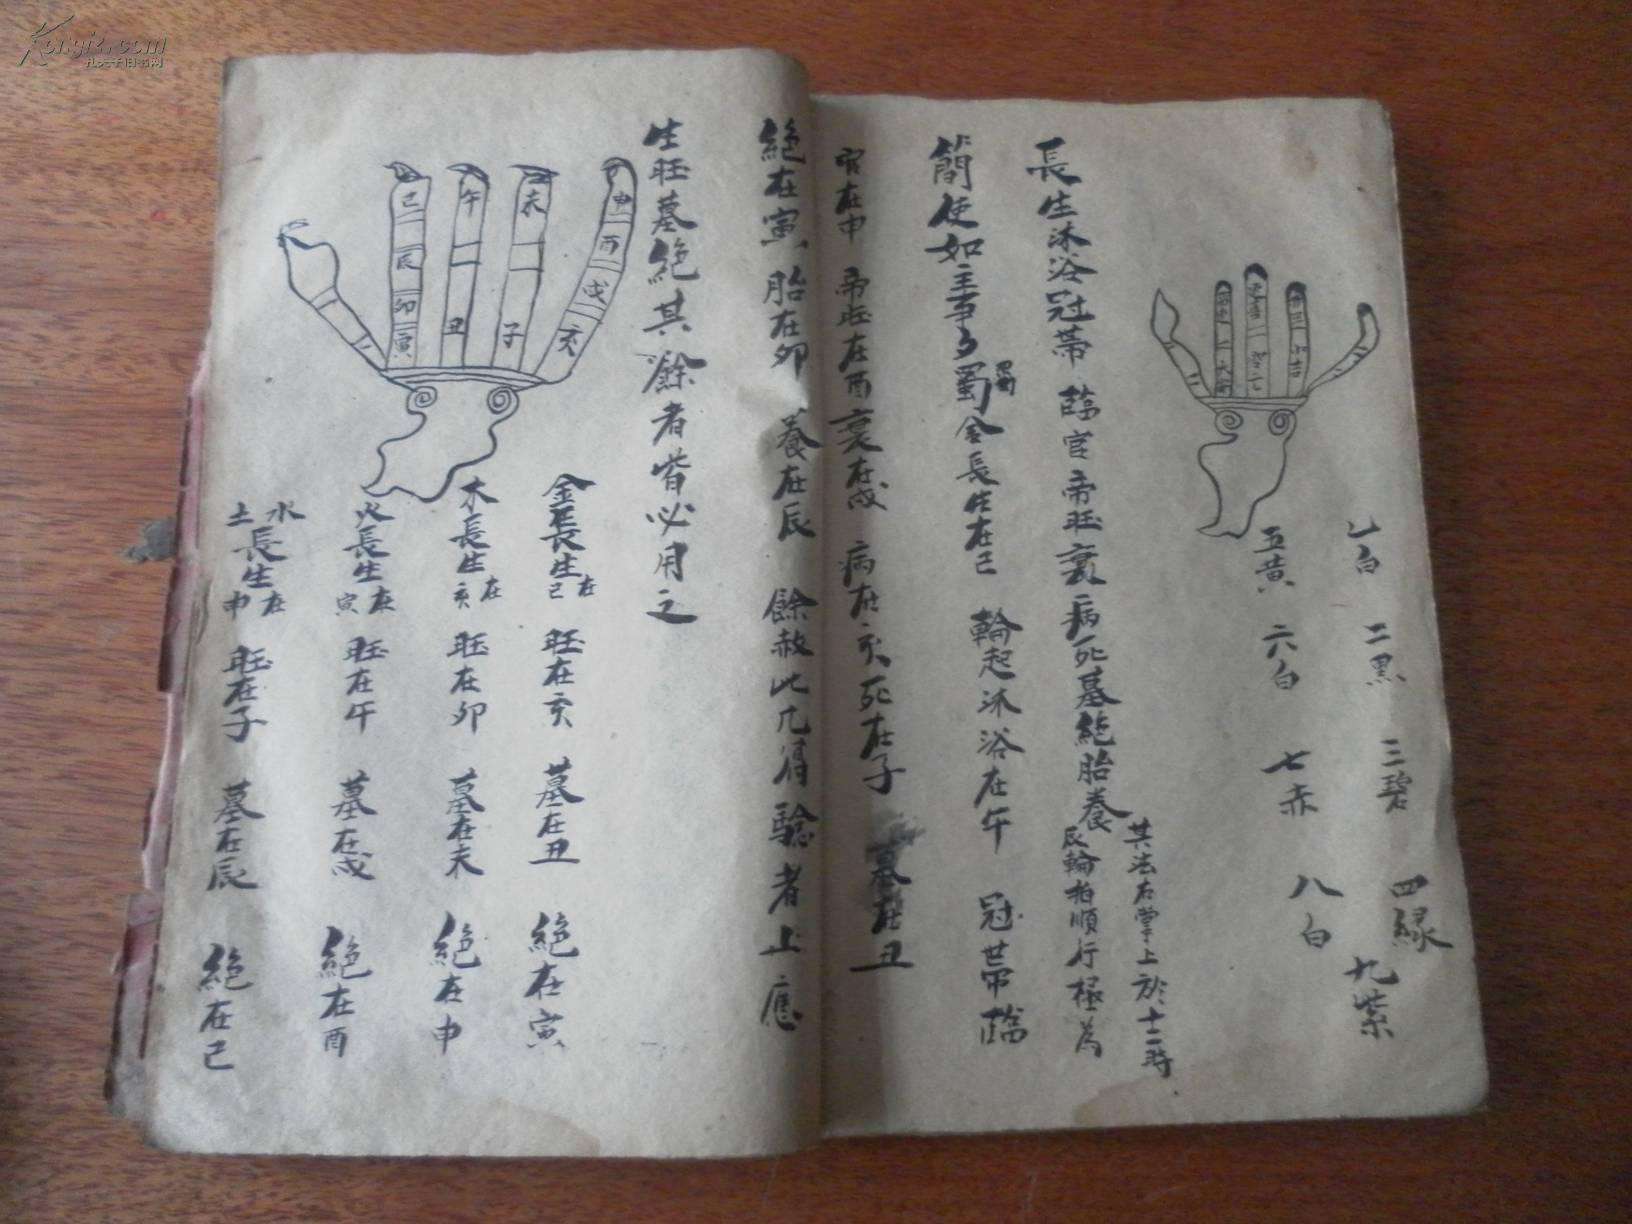 一白 二黑 三碧 四緑
五黄 六白 七赤 八白 九紫
長生沐浴冠帯臨官帝旺衰病死墓絶胎養
其法右掌上於十二時
辰輪拍順行極為
簡使如主事多
金長生在己 輪起沐浴在午 冠带臨
官在申 帝旺在酉衰在戍 病在亥死在子 墓在丑
絶在寅 胎在卯 養在辰 餘赦此凡得驗者上應
生旺墓絶其餘者皆必用之
申 酉 戍 亥
未 子
午 丑
己 辰 卯 寅
金長生在己 旺在亥 墓在丑 絶在寅
木長生在亥 旺在卯 墓在未 絶在申
火長生在寅 旺在午 墓在戍 絶在酉
水土長生在申 旺在子 墓在辰 絶在己
Kongfz.com
孔夫子旧书网